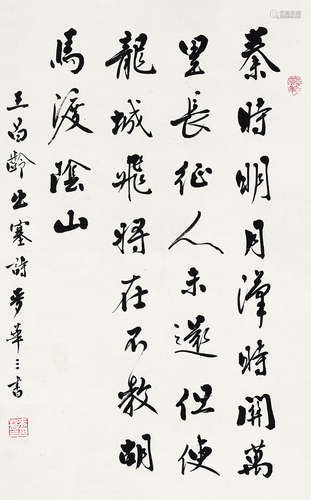 秦時明月漢時關萬
里長征人未還但使
龍城飛將在不教胡
馬渡陰山
王昌齡出塞詩麥華三書